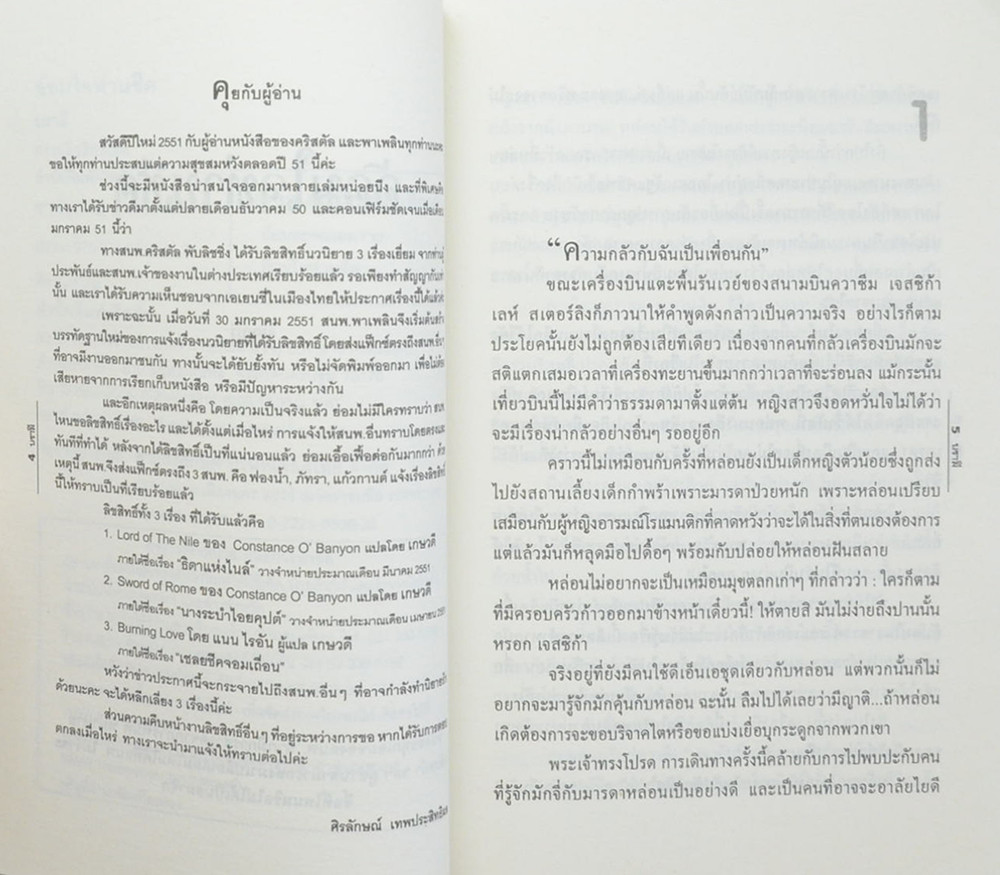 คุยกับผู้อ่าน
สวัสดีปีใหม่ 2551 กับผู้อ่านหนังสือของคริสตัล และพาเพลินทุกท่านนะคะ
ขอให้ทุกท่านประสบแต่ความสุขสมหวังตลอดปี 51 นี้ค่ะ
ช่วงนี้จะมีหนังสือน่าสนใจออกมาหลายเล่มหน่อยนึง และที่พิเศษคือ
ทางเราได้รับข่าวดีมาตั้งแต่ปลายเดือนธันวาคม 50 และคอนเฟิร์มชัดเจนเมื่อต้น
มกราคม 51 นี้ว่า
ทางสนพ.คริสตัล พับลิชชิ่ง ได้รับลิขสิทธิ์นวนิยาย 3 เรื่องเยี่ยม จากท่านผู้
ประพันธ์และสนพ.เจ้าของงานในต่างประเทศเรียบร้อยแล้ว รอเพียงทำสัญญากันเท่า
นั้น และเราได้รับความเห็นชอบจากเอเยนซี่ในเมืองไทยให้ประกาศเรื่องนี้ได้แล้วค่ะ
เพราะฉะนั้น เมื่อวันที่ 30 มกราคม 2551 สนพ.พาเพลินจึงเริ่มต้นสร้าง
บรรทัดฐานใหม่ของการแจ้งเรื่องนวนิยายที่ได้รับลิขสิทธิ์ โดยส่งแฟ็กซ์ตรงถึงสนพ.อื่นๆ
ที่อาจมีงานออกมาชนกัน ทางนั้นจะได้ยับยั้งทัน หรือไม่จัดพิมพ์ออกมา เพื่อไม่ต้อง
เสียหายจากการเรียกเก็บหนังสือ หรือมีปัญหาระหว่างกัน
และอีกเหตุผลหนึ่งคือ โดยความเป็นจริงแล้ว ย่อมไม่มีใครทราบว่า สนพ.
ไหนขอลิขสิทธิ์เรื่องอะไร และได้ตั้งแต่เมื่อไหร่ การแจ้งให้สนพ.อื่นทราบโดยตรงและ
ทันทีที่ทำได้ หลังจากได้ลิขสิทธิ์เป็นที่แน่นอนแล้ว ย่อมเอื้อเฟื้อต่อกันมากกว่า ด้วย
เหตุนี้ สนพ.จึงส่งแฟ็กซ์ตรงถึง 3 สนพ. คือ ฟองน้ำ, ภัทรา, แก้วกานต์ แจ้งเรื่องลิขสิทธิ์
นี้ให้ทราบเป็นที่เรียบร้อยแล้ว
ลิขสิทธิ์ทั้ง 3 เรื่อง ที่ได้รับแล้วคือ
1. Lord of The Nile ของ Constance O' Banyon แปลโดย เกษวดี
ภายใต้ชื่อเรื่อง "ธิดาแห่งไนล์" วางจำหน่ายประมาณเดือน มีนาคม 2551
2. Sword of Rome ของ Constance O' Banyon แปลโดย เกษวดี
ภายใต้ชื่อเรื่อง "นางระบำไอยคุปต์" วางจำหน่ายประมาณเดือน เมษายน 2551
3. Burning Love โดย แนน ไรอัน ผู้แปล เกษวดี
ภายใต้ชื่อเรื่อง "เชลยชีคจอมเถื่อน"
หวังว่าข่าวประกาศนี้จะกระจายไปถึงสนพ.อื่นๆ ที่อาจกำลังทำนิยาย
ด้วยนะคะ จะได้หลีกเลี่ยง 3 เรื่องนี้ค่ะ
ส่วนความคืบหน้างานลิขสิทธิ์อื่นๆ ที่อยู่ระหว่างการขอ หากได้รับการตอบ
ตกลงเมื่อไหร่ ทางเราจะนำมาแจ้งให้ทราบต่อไปค่ะ
ศิรลักษณ์
4 บาร์ลี
1
"ความกลัวกับฉันเป็นเพื่อนกัน"
ขณะเครื่องบินแตะพื้นรันเวย์ของสนามบินควาชีม เจสซิก้า
เลห์ สเตอร์ลิงก็ภาวนาให้คำพูดดังกล่าวเป็นความจริง อย่างไรก็ตาม
ประโยคนั้นยังไม่ถูกต้องเสียทีเดียว เนื่องจากคนที่กลัวเครื่องบินมักจะ
สติแตกเสมอเวลาที่เครื่องทะยานขึ้นมากกว่าเวลาที่จะร่อนลง แม้กระนั้น
เที่ยวบินนี้ไม่มีคำว่าธรรมดามาตั้งแต่ต้น หญิงสาวจึงอดหวั่นใจไม่ได้ว่า
จะมีเรื่องน่ากลัวอย่างอื่นๆ รออยู่อีก
คราวนี้ไม่เหมือนกับครั้งที่หล่อนยังเป็นเด็กหญิงตัวน้อยซึ่งถูกส่ง
ไปยังสถานเลี้ยงเด็กกำพร้าเพราะมารดาป่วยหนัก เพราะหล่อนเปรียบ
เสมือนกับผู้หญิงอารมณ์โรแมนติกที่คาดหวังว่าจะได้ในสิ่งที่ตนเองต้องการ
แต่แล้วมันก็หลุดมือไปดื้อๆ พร้อมกับปล่อยให้หล่อนฝันสลาย
หล่อนไม่อยากจะเป็นเหมือนมุขตลกเก่าๆ ที่กล่าวว่า : ใครก็ตาม
ที่มีครอบครัวก้าวออกมาข้างหน้าเดี๋ยวนี้! ให้ตายสิ มันไม่ง่ายถึงปานนั้น
หรอก เจสซิก้า
จริงอยู่ที่ยังมีคนใช้ดีเอ็นเอชุดเดียวกับหล่อน แต่พวกนั้นก็ไม่
อยากจะมารู้จักมักคุ้นกับหล่อน ฉะนั้น ลืมไปได้เลยว่ามีญาติ...ถ้าหล่อน
เกิดต้องการจะขอบริจาคไตหรือขอแบ่งเยื่อบุกระดูกจากพวกเขา
พระเจ้าทรงโปรด การเดินทางครั้งนี้คล้ายกับการไปพบปะกับคน
ที่รู้จักมักจี่กับมารดาหล่อนเป็นอย่างดี และเป็นคนที่อาจจะอาลัยไยดี